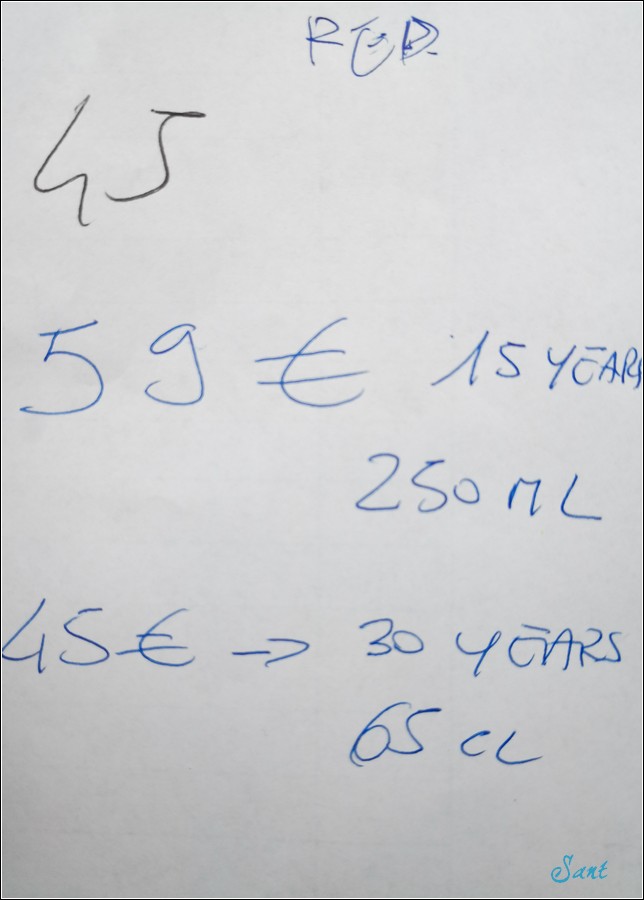 RED.
45
59 € 15 YEARS
250 ML
45 € → 30 YEARS
65 CL
Sant